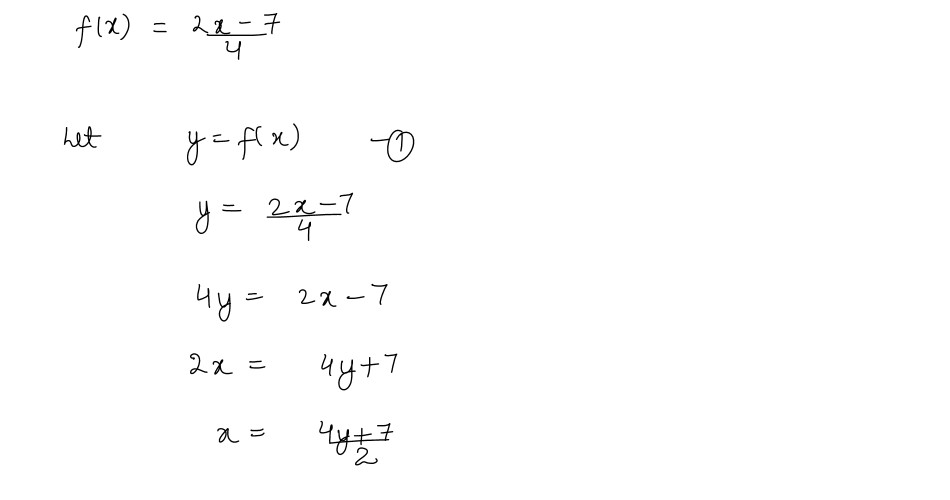 f(x) = (2x - 7)/4
Let y = f(x) - ①
y = (2x - 7)/4
4y = 2x - 7
2x = 4y + 7
x = (4y + 7)/2